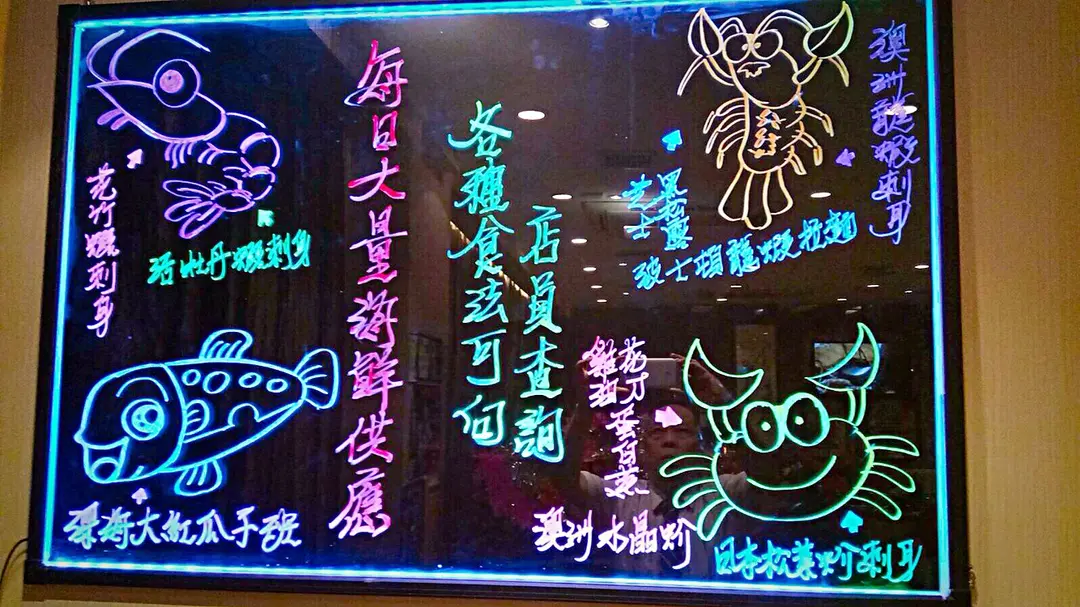 花竹蝦刺身
活牡丹蝦刺身
深海大紅瓜子班
每日大量海鮮供應
各種食法可向
店員查詢
黑松露
芝士
波士頓龍蝦拉麵
澳洲龍蝦刺身
花刀蛋白蒸
雞油
澳洲水晶蚧
日本松葉蚧刺身